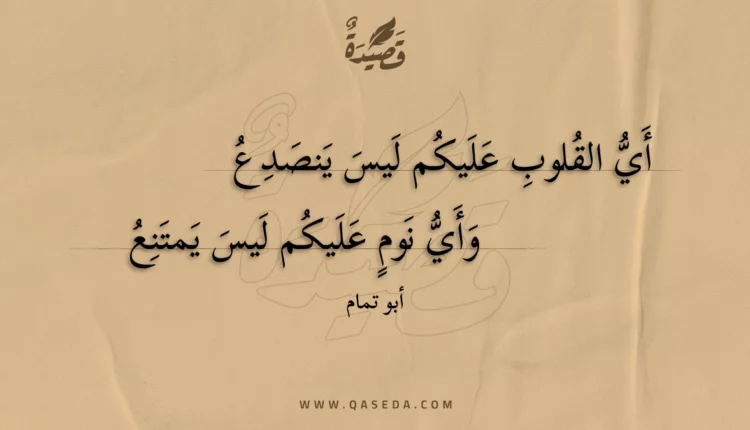 قَصِيدَةٌ
أَيُّ القُلوبِ عَلَيكُم لَيسَ يَنصَدِعُ
وَأَيُّ نَومٍ عَلَيكُم لَيسَ يَمتَنِعُ
أبو تمام
WWW.QASEDA.COM